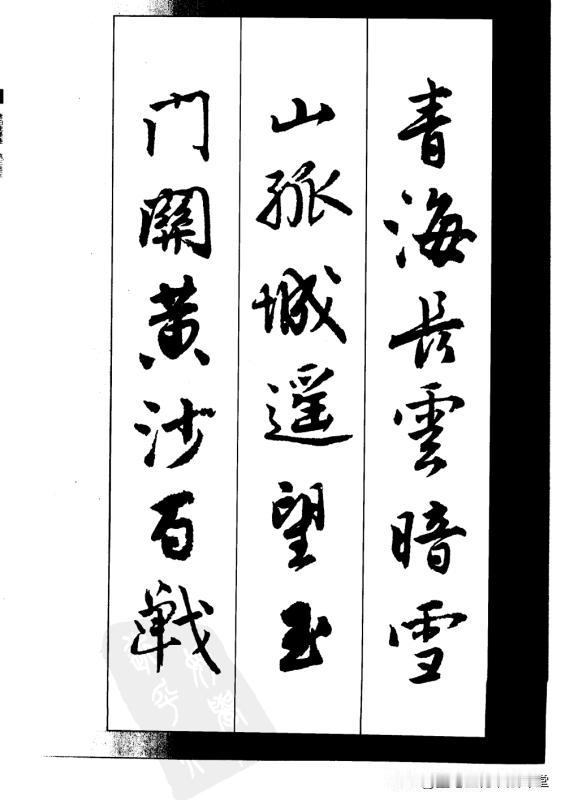 青海長雲暗雪
山孤城遥望玉
门關黄沙百戰
堂